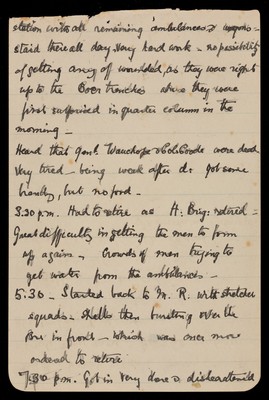 station with all remaining ambulances & wagons -
staid there all day. Very hard work - no possibility
of getting any of wounded, as they were right
up to the Boer trenches where they were
first surprised in quarter column in the
morning -
Heard that Genl. Wauchope & Col. Coode were dead
Very tired - being weak after d: got some
brandy, but no food -
3.30 p.m. Had to retire as H. Brig: retired -
Great difficulty in getting the men to form
up again - Crowds of men trying to
get water from the ambulances -
5.30 - Started back to M. R. with stretcher
squads - shells then bursting over the
Bn: in front - which was once more
ordered to retire
7.30 p.m. Got in very done & disheartened